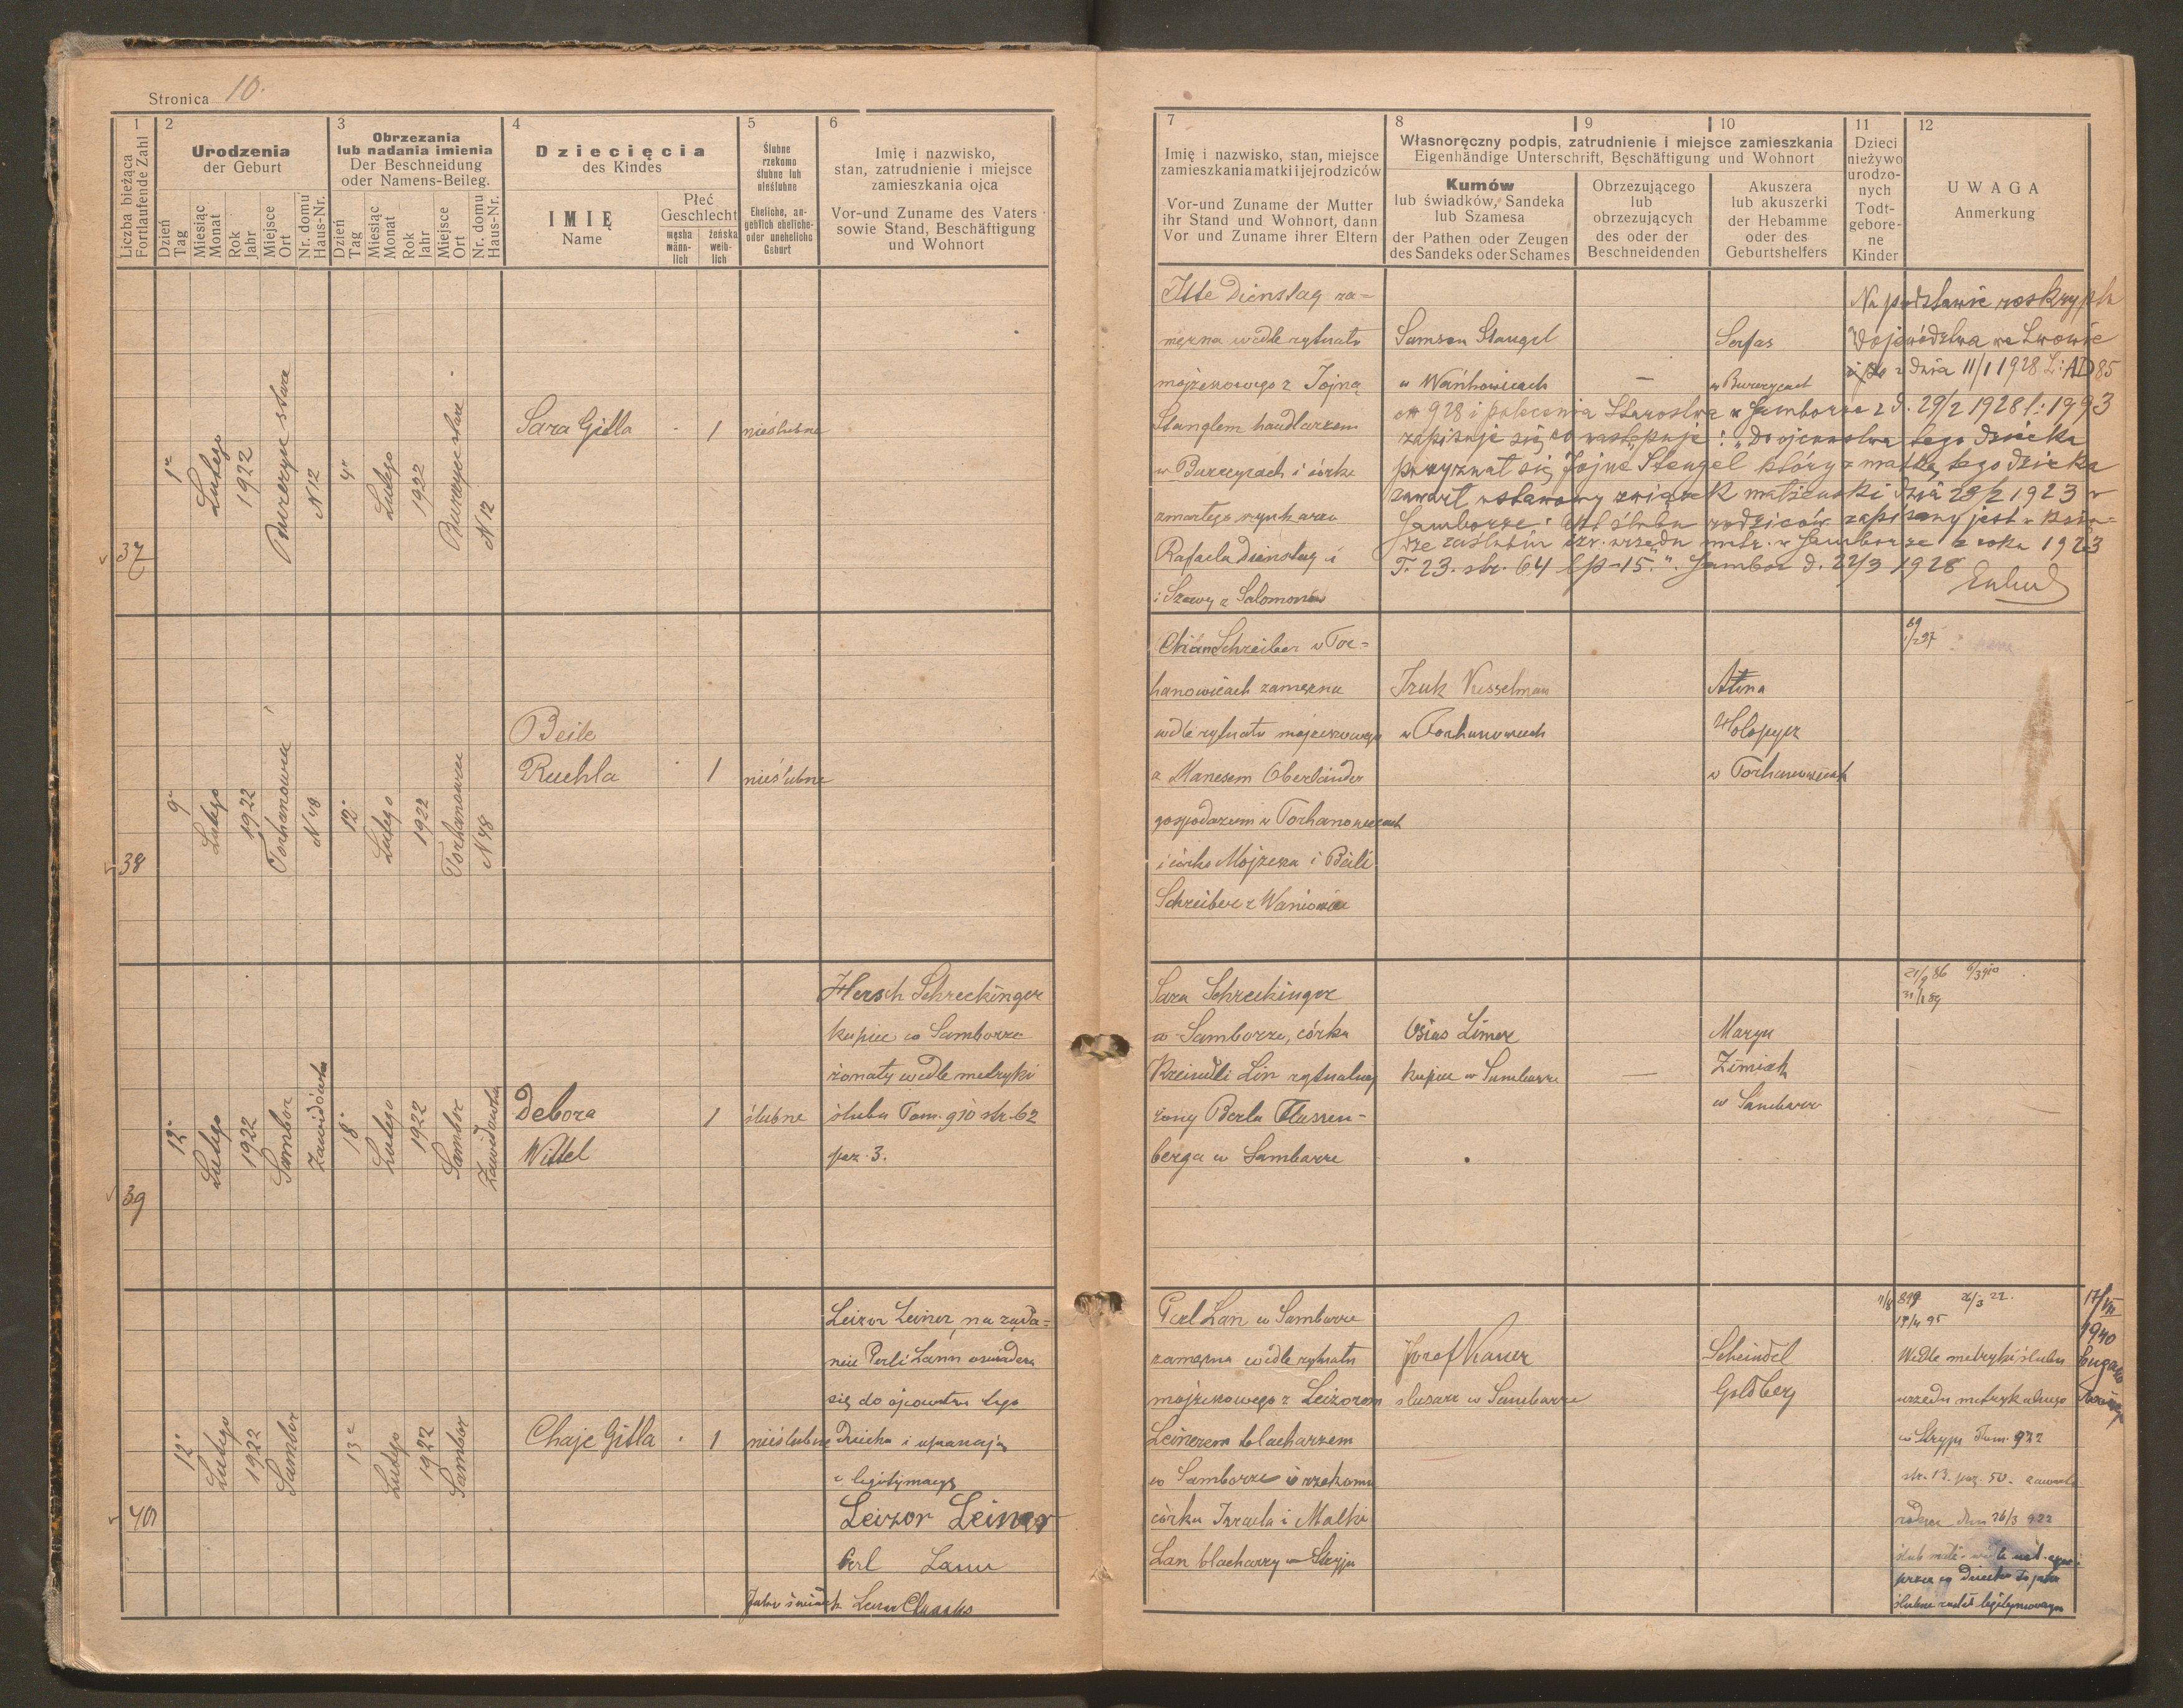 Stronica 10.
1
Liczba bieżąca
Fortlaufende Zahl
2
Urodzenia
der Geburt
Dzień
Tag
Miesiąc
Monat
Rok
Jahr
Miejsce
Ort
Nr. domu
Haus-Nr.
3
Obrzezania
lub nadania imienia
Der Beschneidung
oder Namens-Beileg.
Dzień
Tag
Miesiąc
Monat
Rok
Jahr
Miejsce
Ort
Nr. domu
Haus-Nr.
4
Dziecięcia
des Kindes
IMIĘ
Name
Płeć
Geschlecht
męska
männ-
lich
żeńska
weib-
lich
5
Ślubne
rzekomo
ślubne lub
nieślubne
Eheliche, an-
geblich eheliche-
oder uneheliche
Geburt
6
Imię i nazwisko,
stan, zatrudnienie i miejsce
zamieszkania ojca
Vor-und Zuname des Vaters
sowie Stand, Beschäftigung
und Wohnort
7
Imię i nazwisko, stan, miejsce
zamieszkania matki i jej rodziców
Vor-und Zuname der Mutter
ihr Stand und Wohnort, dann
Vor und Zuname ihrer Eltern
8
9
10
Własnoręczny podpis, zatrudnienie i miejsce zamieszkania
Eigenhändige Unterschrift, Beschäftigung und Wohnort
Kumów
lub świadków, Sandeka
lub Szamesa
der Pathen oder Zeugen
des Sandeks oder Schames
Obrzezującego
lub
obrzezujących
des oder der
Beschneidenden
Akuszera
lub akuszerki
der Hebamme
oder des
Geburtshelfers
11
Dzieci
nieżywo
urodzo-
nych
Todt-
gebore-
ne
Kinder
12
UWAGA
Anmerkung
37
1
Lutego
1922
N 12
4
Lutego
1922
N 12
Sara Gitla
1
nieślubne
Dienstag za-
mężna wedle rytuału
mojżeszowego z Jojną
Stanglem handlarzem
w Burczycach i córka
zmarłego
Rafaela Dienstag i
i z Salomonów
Samson Stangel
w Wańkowicach
—
w Burczycach
Na podstawie reskryptu
Województwa we Lwowie
z dnia 11/1 1928 L: AD 85
928 i polecenia Starostwa w Samborze z d. 29/2 1928 l: 1993
zapisuje się co następuje: "Do ojcowstwa tego dziecka
przyznał się Jojne Stengel który z matką tego dziecka
zawarł ustawowy związek małżeński dnia 28/2 1923 w
Samborze: Akt ślubu rodziców zapisany jest w księ-
dze zaślubin izr. urzędu metr. w Samborze z roku 1923
T. 23. str. 64 lp-15.". Sambor d. 22/3 1928
38
9
Lutego
1922
Torhanowice
N 48
12
Lutego
1922
Torhanowice
N 48
Beile
Ruchla
1
nieślubne
Schreiber w Tor-
hanowicach zamężna
wedle rytuału mojżeszowego
z Manesem Oberländer
gospodarzem w Torhanowicach
i córka Mojżesza i Beili
Schreiber z
w Torhanowicach
w Torhanowicach
39
12
Lutego
1922
Sambor
Zawidówka
18
Lutego
1922
Sambor
Zawidówka
Debora
Wittel
1
ślubne
Hersch Schreckinger
kupiec w Samborze
żonaty wedle metryki
ślubu Tom. 910 str. 62
poz. 3.
Sara Schreckinger
w Samborze, córka
Kreindli Lin rytualnej
żony Berla
berga w Samborze
Osias Limer
kupiec w Samborze
—
Marya
w Samborze
40
12
Lutego
1922
Sambor
13
Lutego
1922
Sambor
Chaje Gitla
1
nieślubne
Leizor Leiner, na żąda-
nie Perli Lann oświadcza
się do ojcowstwa tego
dziecka i
legitymacyę
Leizor Leiner
Perl Lann
Jako świadek
Perl Lan w Samborze
zamężna wedle rytuału
mojżeszowego z Leizorem
Leinerem blacharzem
w Samborze i rzekoma
córka Izraela i Malki
Lan blacharzy w Stryju
Josef
ślusarz w Samborze
Scheindel
Goldberg
Wedle metryki ślubu
urzędu metrykalnego
w Stryju Tom. 922
str. 13. poz. 50. zawarli
rodzice dnia 26/3 922
17/VIII
1940